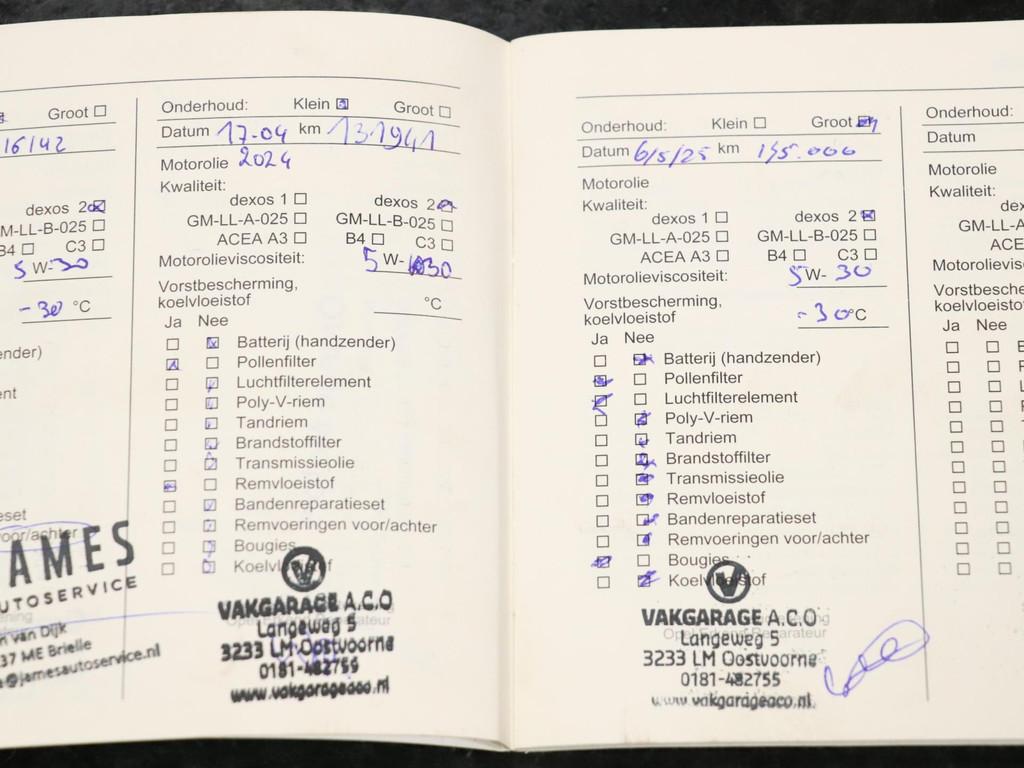 Groot
16142
dexos 2
M-LL-B-025
B4 C3
5 W-30
-30 °C
ender)
ent
set
voor/achter
JAMES
AUTOSERVICE
n van Dijk
37 ME Brielle
@jamesautoservice.nl
Onderhoud: Klein Groot
Datum 17-04 km 131941
Motorolie 2024
Kwaliteit:
dexos 1 dexos 2
GM-LL-A-025 GM-LL-B-025
ACEA A3 B4 C3
Motorolieviscositeit: 5 W- 30
Vorstbescherming,
koelvloeistof °C
Ja Nee
Batterij (handzender)
Pollenfilter
Luchtfilterelement
Poly-V-riem
Tandriem
Brandstoffilter
Transmissieolie
Remvloeistof
Bandenreparatieset
Remvoeringen voor/achter
Bougies
Koelvloeistof
VAKGARAGE A.C.O
Langeweg 5
Opel Erkend Reparateur
3233 LM Oostvoorne
0181-482755
www.vakgarageaco.nl
Onderhoud: Klein Groot
Datum 6/5/25 km 145.000
Motorolie
Kwaliteit:
dexos 1 dexos 2
GM-LL-A-025 GM-LL-B-025
ACEA A3 B4 C3
Motorolieviscositeit: 5W- 30
Vorstbescherming,
koelvloeistof -30°C
Ja Nee
Batterij (handzender)
Pollenfilter
Luchtfilterelement
Poly-V-riem
Tandriem
Brandstoffilter
Transmissieolie
Remvloeistof
Bandenreparatieset
Remvoeringen voor/achter
Bougies
Koelvloeistof
VAKGARAGE A.C.O
Langeweg 5
Opel Erkend Reparateur
3233 LM Oostvoorne
0181-482755
www.vakgarageaco.nl
Onderhoud:
Datum
Motorolie
Kwaliteit:
dex
GM-LL-A
ACE
Motorolievis
Vorstbesche
koelvloeistof
Ja Nee